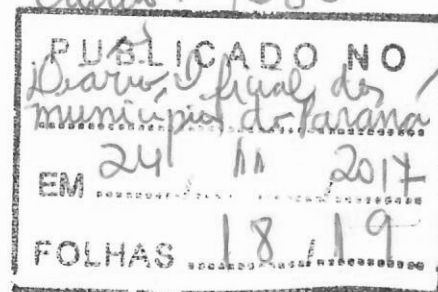 PUBLICADO NO
Diário Oficial dos
municípios do Paraná
EM 24 / 11 / 2017
FOLHAS 18 / 19